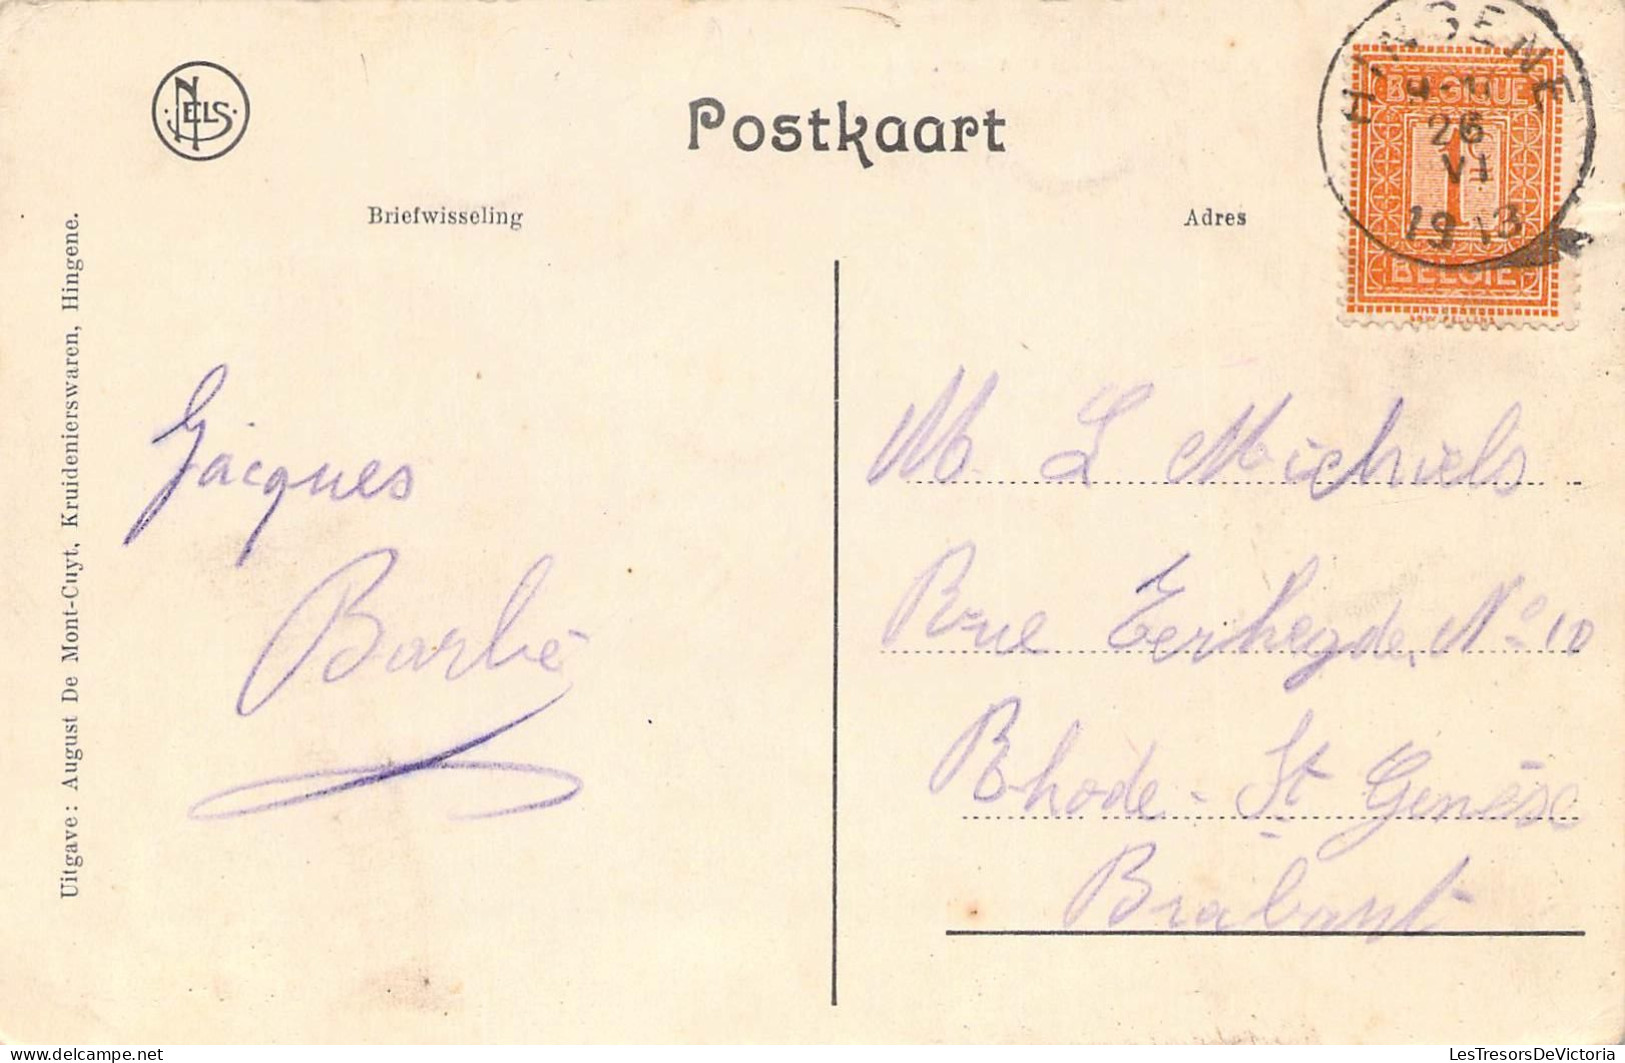 NELS
Postkaart
Briefwisseling
Adres
HINGENE
26
VI
1913
BELGIQUE
1
BELGIË
Uitgave: August De Mont-Cuyt, Kruidenierswaren, Hingene.
Jacques
Barbé
M. L Michiels
Rue Eerhegde, Nº 10
Rhode-St Genèse
Brabant
LesTresorsDeVictoria
delcampe.net